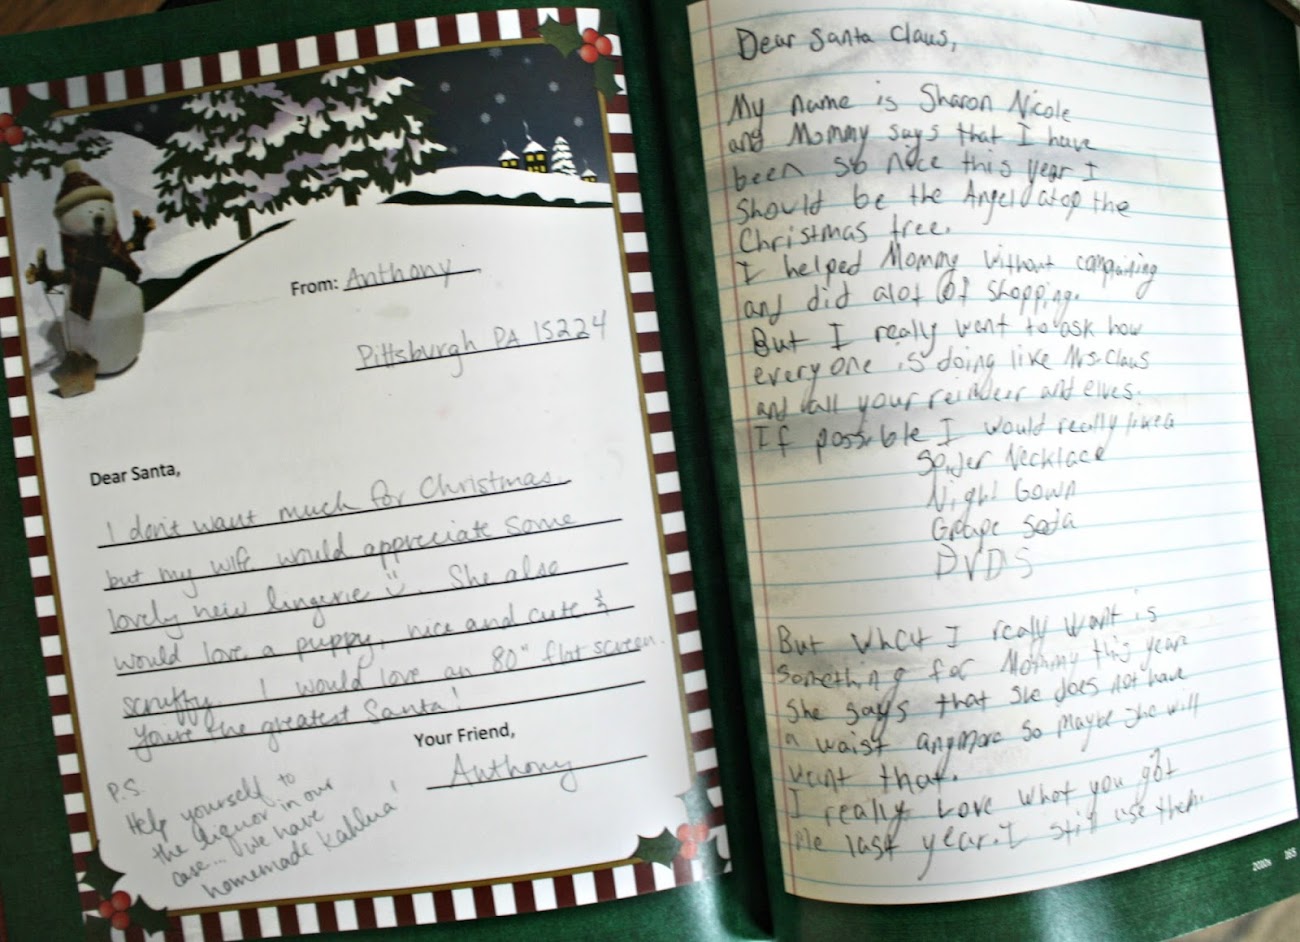 From: Anthony
Pittsburgh PA 15224
Dear Santa,
I don't want much for Christmas
but my wife would appreciate some
lovely new lingerie :). She also
would love a puppy, nice and cute &
scruffy. I would love an 80" flat screen.
You're the greatest Santa!
Your Friend,
Anthony
P.S.
Help yourself to
the liquor in our
case... we have
homemade Kahlua!
Dear Santa Claus,
My name is Sharon Nicole
and Mommy says that I have
been so nice this year I
should be the Angel atop the
Christmas tree.
I helped Mommy without complaining
and did alot of shopping.
But I really want to ask how
everyone is doing like Mrs. Claus
and all your reindeer and elves.
If possible I would really like a
Necklace
Night Gown
Grape Soda
DVDS
But what I really want is
something for Mommy this year
she says that she does not have
a waist anymore so maybe she will
want that.
I really Love what you got
me last year. I still use them.
2010s 165